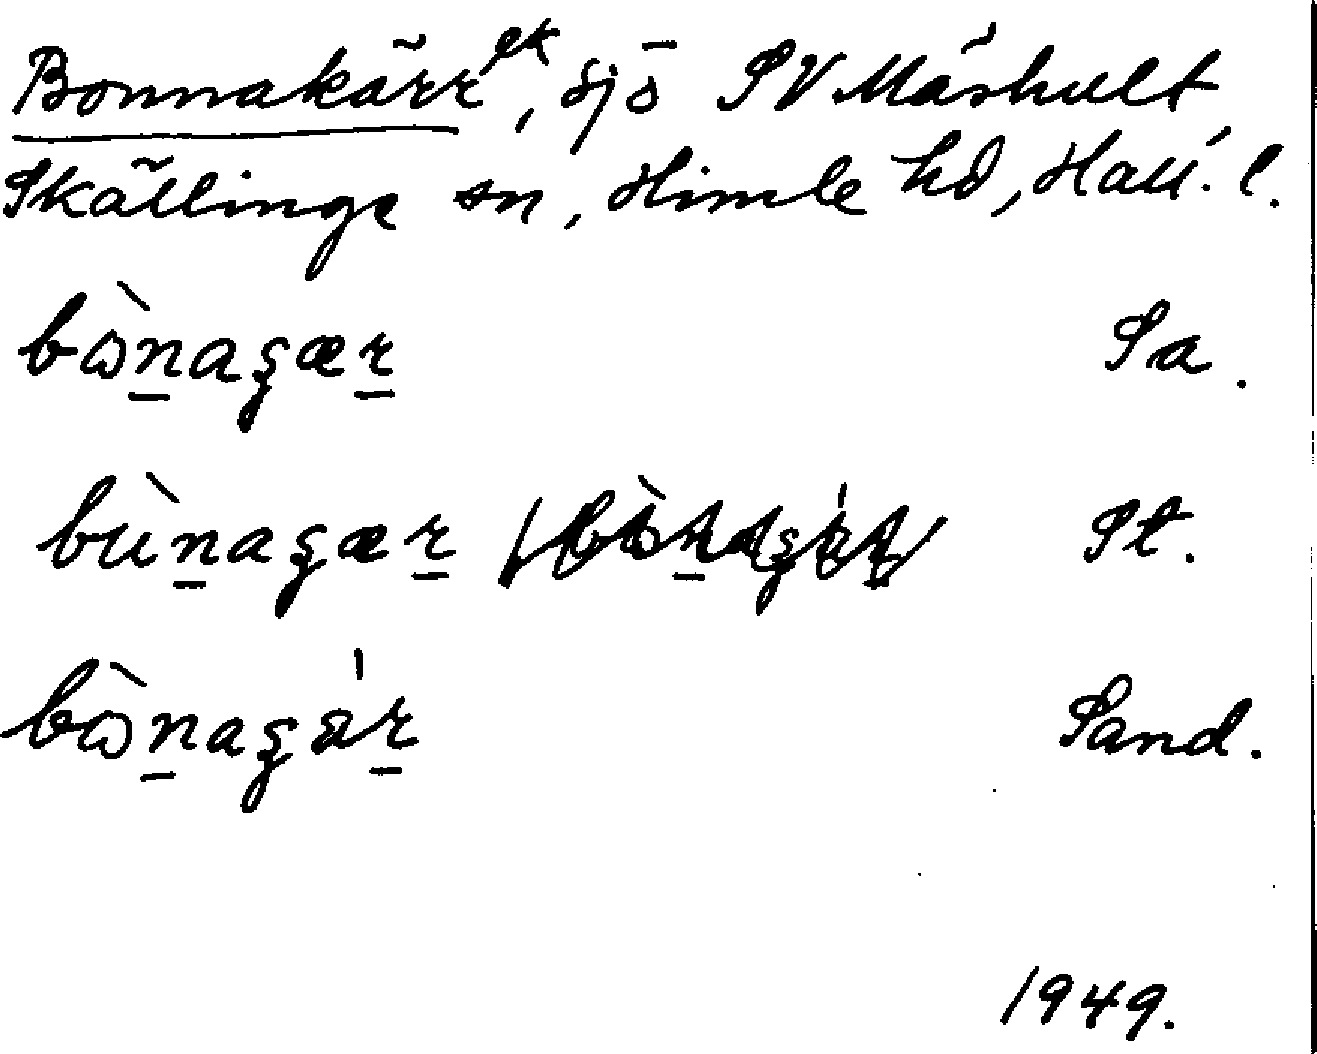 Bonnakärr ek, sjö SV Mårhult
Skällinge sn, Himle hd, Hall. l.
bὼn̲agær̲ Sa.
bùn̲agær̲ St.
bὼn̲agár̲ Sand.
1949.